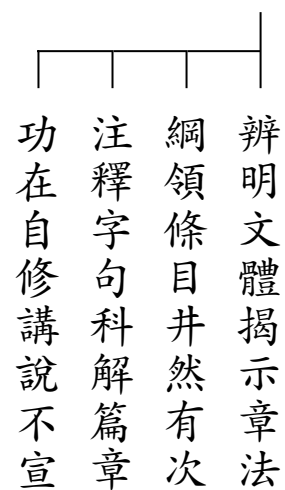 辨明文體揭示章法
綱領條目井然有次
注釋字句科解篇章
功在自修講說不宣